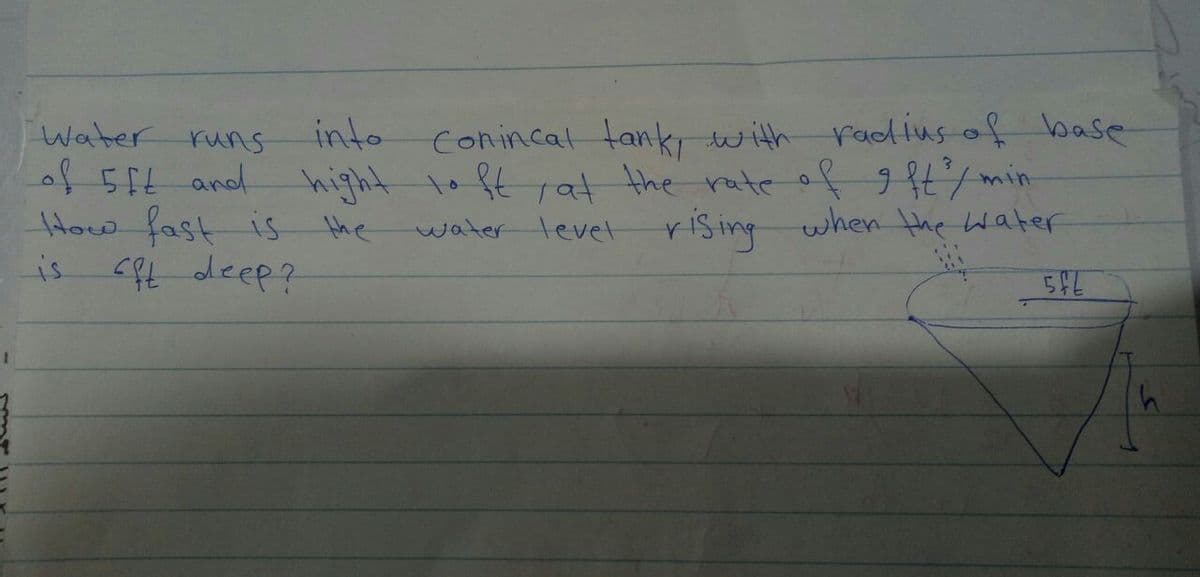 Water runs into Conincal tank, with radius of base
of 5ft and hight 10 ft, at the rate of 9 ft³/min
How fast is the water level rising when the water
is 6ft deep?
5ft
h